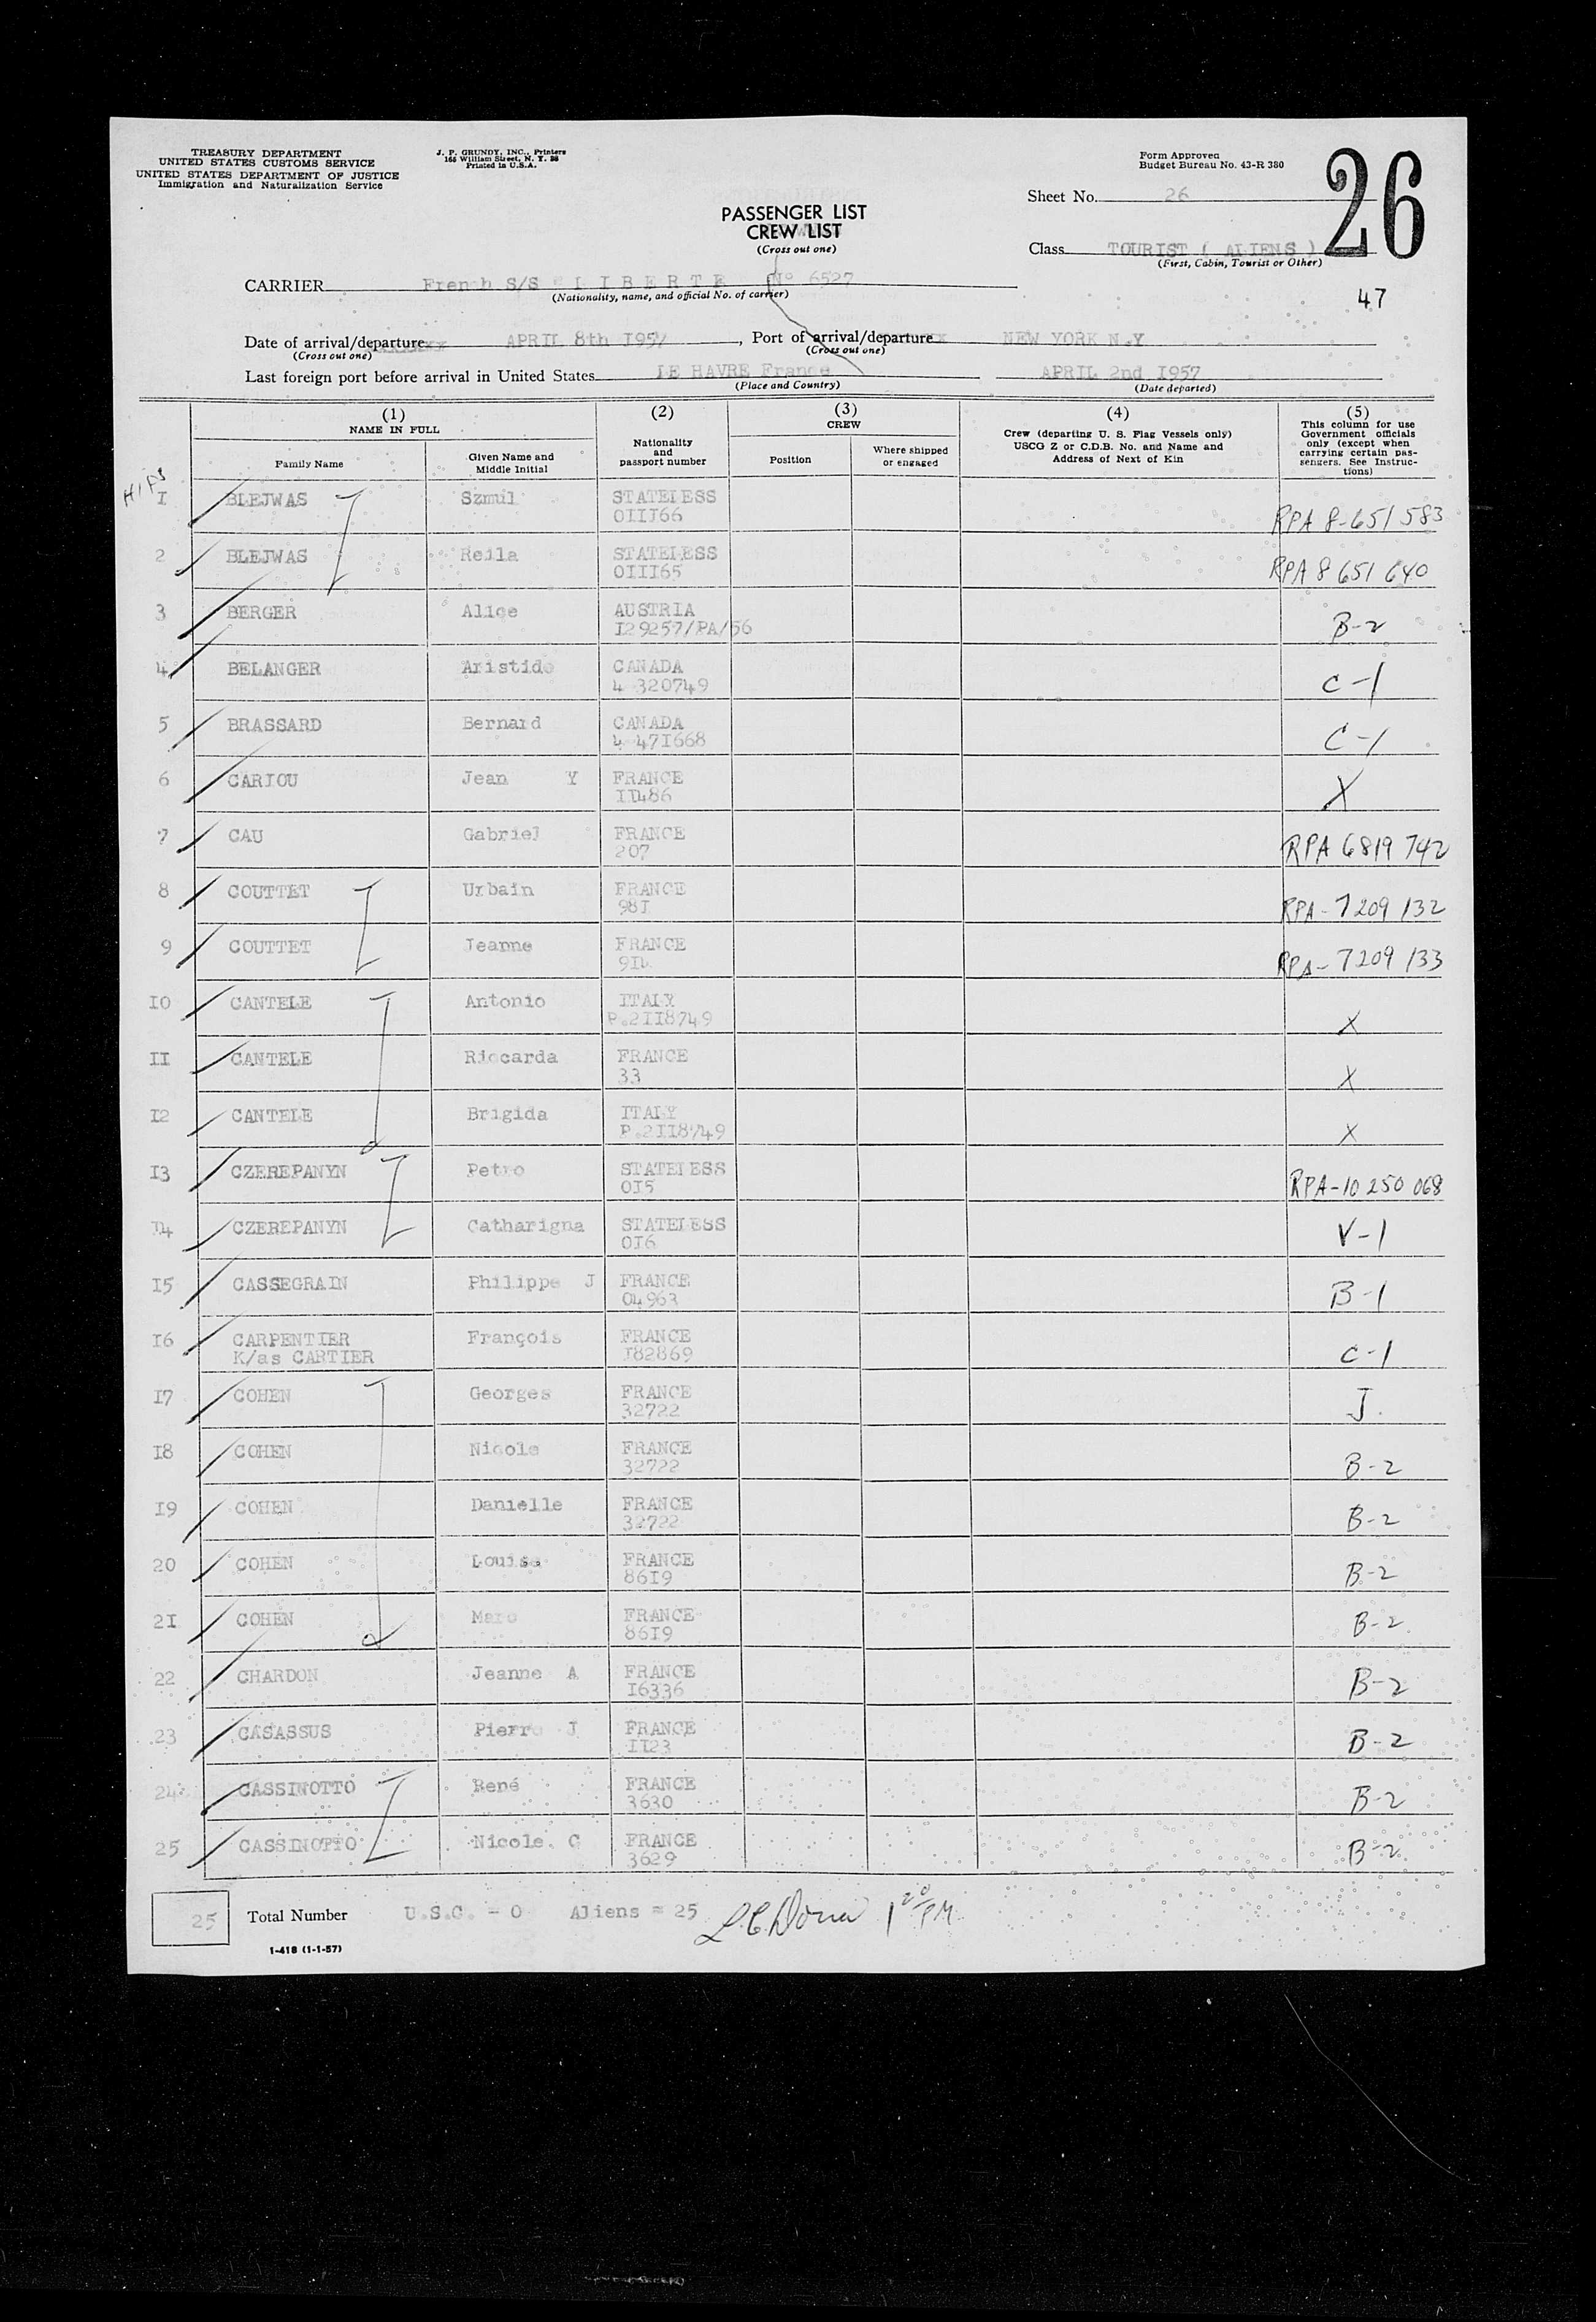 TREASURY DEPARTMENT
UNITED STATES CUSTOMS SERVICE
UNITED STATES DEPARTMENT OF JUSTICE
Immigration and Naturalization Service
J. P. GRUNDY, INC., Printers
165 William Street, N. Y. 38
Printed in U.S.A.
Form Approved
Budget Bureau No. 43-R 380
26
Sheet No. 26
PASSENGER LIST
CREW LIST
(Cross out one)
Class TOURIST ( ALIENS )
(First, Cabin, Tourist or Other)
CARRIER French S/S L I B E R T E N° 6527
(Nationality, name, and official No. of carrier)
47
Date of arrival/departure APRIL 8th I957, Port of arrival/departure NEW YORK N.Y
(Cross out one) (Cross out one)
Last foreign port before arrival in United States LE HAVRE France APRIL 2nd I957
(Place and Country) (Date departed)
(1) NAME IN FULL
Family Name
Given Name and Middle Initial
(2) Nationality and passport number
(3) CREW
Position
Where shipped or engaged
(4) Crew (departing U. S. Flag Vessels only) USCG Z or C.D.B. No. and Name and Address of Next of Kin
(5) This column for use Government officials only (except when carrying certain passengers. See Instructions)
I BLEJWAS Szmul STATELESS OIII66 RPA 8-651 583
2 BLEJWAS Reila STATELESS OIII65 RPA 8 651 640
3 BERGER Alice AUSTRIA I29257/PA/56 B-2
4 BELANGER Aristide CANADA 4 320749 C-1
5 BRASSARD Bernard CANADA 4 47I668 C-1
6 CARIOU Jean Y FRANCE II486 X
7 CAU Gabriel FRANCE 207 RPA 6819 742
8 COUTTET Urbain FRANCE 98I RPA-7209 132
9 COUTTET Jeanne FRANCE 9I4 RPA-7209 133
IO CANTELE Antonio ITALY P.2II8749 X
II CANTELE Riccarda FRANCE 33 X
I2 CANTELE Brigida ITALY P.2II8749 X
I3 CZEREPANYN Petro STATELESS OI5 RPA-10 250 068
I4 CZEREPANYN Catharigna STATELESS OI6 V-1
I5 CASSEGRAIN Philippe J FRANCE 04963 B-1
I6 CARPENTIER K/as CARTIER François FRANCE I82869 C-1
I7 COHEN Georges FRANCE 32722 J.
I8 COHEN Nicole FRANCE 32722 B-2
I9 COHEN Danielle FRANCE 32722 B-2
20 COHEN Louise FRANCE 86I9 B-2
2I COHEN Marc FRANCE 86I9 B-2
22 CHARDON Jeanne A FRANCE I6336 B-2
23 CASASSUS Pierre J FRANCE II23 B-2
24 CASSINOTTO René FRANCE 3630 B-2
25 CASSINOTTO Nicole G FRANCE 3629 B-2
25 Total Number U.S.C. - 0 Aliens = 25 1 20 PM
I-418 (1-1-57)